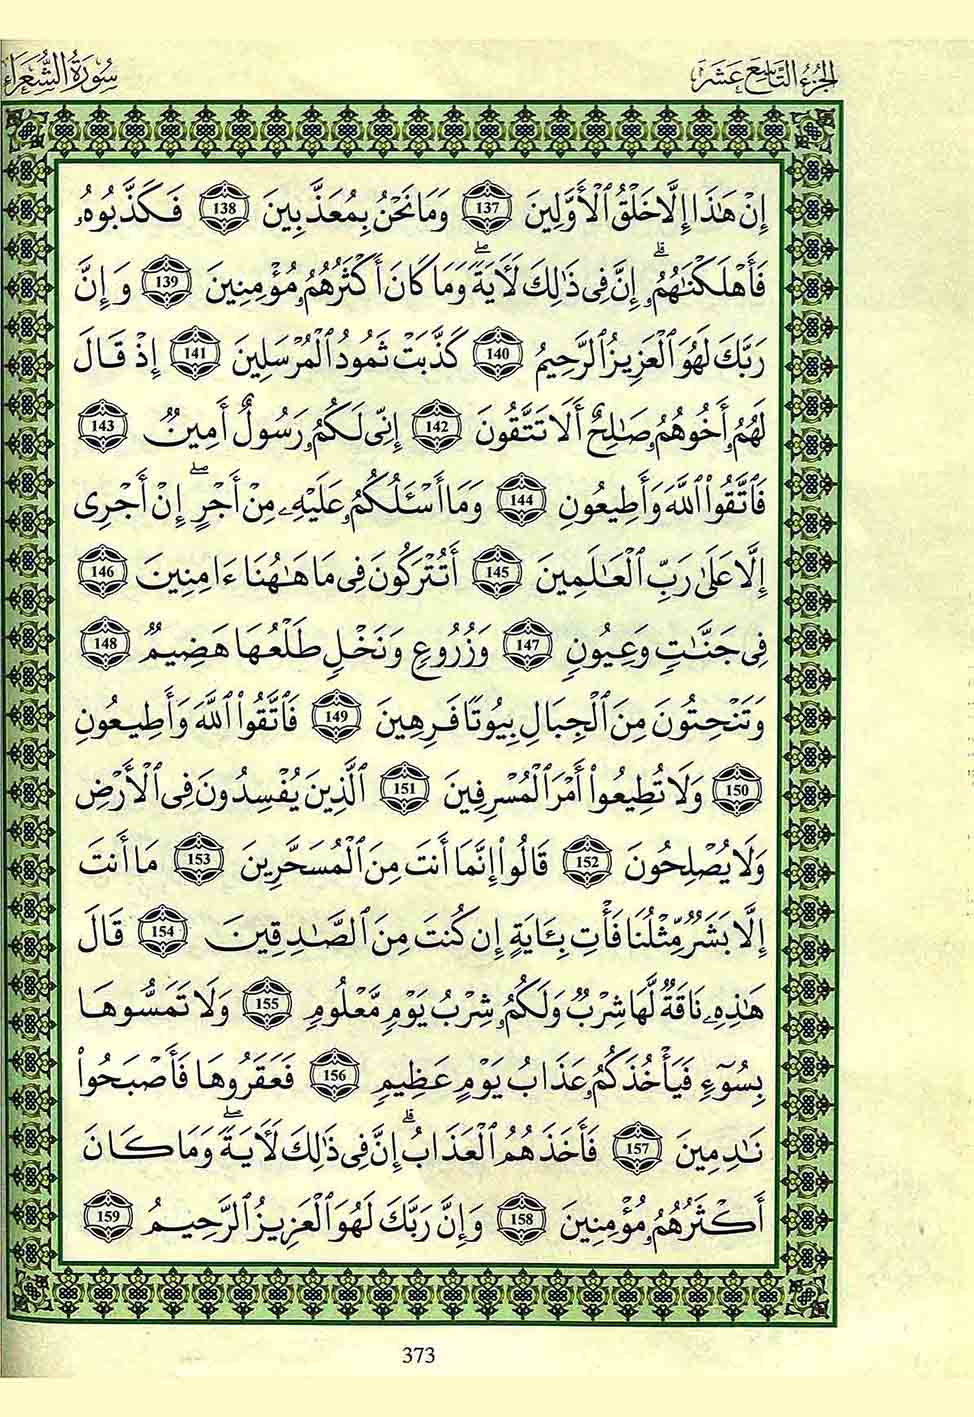 الجزء التاسع عشر
سورة الشعراء
إِنْ هَٰذَا إِلَّا خَلْقُ ٱلْأَوَّلِينَ 137 وَمَا نَحْنُ بِمُعَذَّبِينَ 138 فَكَذَّبُوهُۥ
فَأَهْلَكْنَٰهُمُۥٓۗ إِنَّ فِي ذَٰلِكَ لَأٓيَةًۖ وَمَا كَانَ أَكْثَرُهُمُۥ مُؤْمِنِينَ 139 وَإِنَّ
رَبَّكَ لَهُوَ ٱلْعَزِيزُ ٱلرَّحِيمُ 140 كَذَّبَتْ ثَمُودُ ٱلْمُرْسَلِينَ 141 إِذْ قَالَ
لَهُمُۥ أَخُوهُمُۥ صَٰلِحٌ أَلَا تَتَّقُونَ 142 إِنِّي لَكُمُۥ رَسُولٌ أَمِينٌ 143
فَٱتَّقُواْ ٱللَّهَ وَأَطِيعُونِ 144 وَمَا أَسْـَٔلُكُمُۥ عَلَيْهِۦ مِنْ أَجْرٍۖ إِنْ أَجْرِي
إِلَّا عَلَىٰ رَبِّ ٱلْعَٰلَمِينَ 145 أَتُتْرَكُونَ فِي مَا هَٰهُنَا ءَامِنِينَ 146
فِي جَنَّٰتٍ وَعِيُونٍ 147 وَزُرُوعٍ وَنَخْلٍ طَلْعُهَا هَضِيمٌ 148
وَتَنْحِتُونَ مِنَ ٱلْجِبَالِ بِيُوتًا فَرِهِينَ 149 فَٱتَّقُواْ ٱللَّهَ وَأَطِيعُونِ
150 وَلَا تُطِيعُواْ أَمْرَ ٱلْمُسْرِفِينَ 151 ٱلَّذِينَ يُفْسِدُونَ فِي ٱلْأَرْضِ
وَلَا يُصْلِحُونَ 152 قَالُواْ إِنَّمَا أَنتَ مِنَ ٱلْمُسَحَّرِينَ 153 مَا أَنتَ
إِلَّا بَشَرٌ مِّثْلُنَا فَأْتِ بِـَٔايَةٍ إِن كُنتَ مِنَ ٱلصَّٰدِقِينَ 154 قَالَ
هَٰذِهِۦ نَاقَةٌ لَّهَا شِرْبٌ وَلَكُمُۥ شِرْبُ يَوْمٍ مَّعْلُومٍ 155 وَلَا تَمَسُّوهَا
بِسُوٓءٍ فَيَأْخُذَكُمُۥ عَذَابُ يَوْمٍ عَظِيمٍ 156 فَعَقَرُوهَا فَأَصْبَحُواْ
نَٰدِمِينَ 157 فَأَخَذَهُمُ ٱلْعَذَابُۗ إِنَّ فِي ذَٰلِكَ لَأٓيَةًۖ وَمَا كَانَ
أَكْثَرُهُمُۥ مُؤْمِنِينَ 158 وَإِنَّ رَبَّكَ لَهُوَ ٱلْعَزِيزُ ٱلرَّحِيمُ 159
373